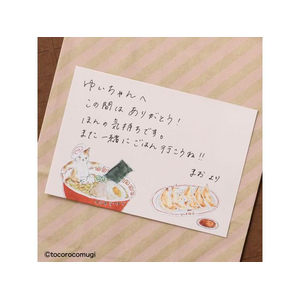 ゆいちゃんへ
この間はありがとう!
ほんの気持ちです。
また一緒にごはん行こうね!!
まお より
©tocorocomugi